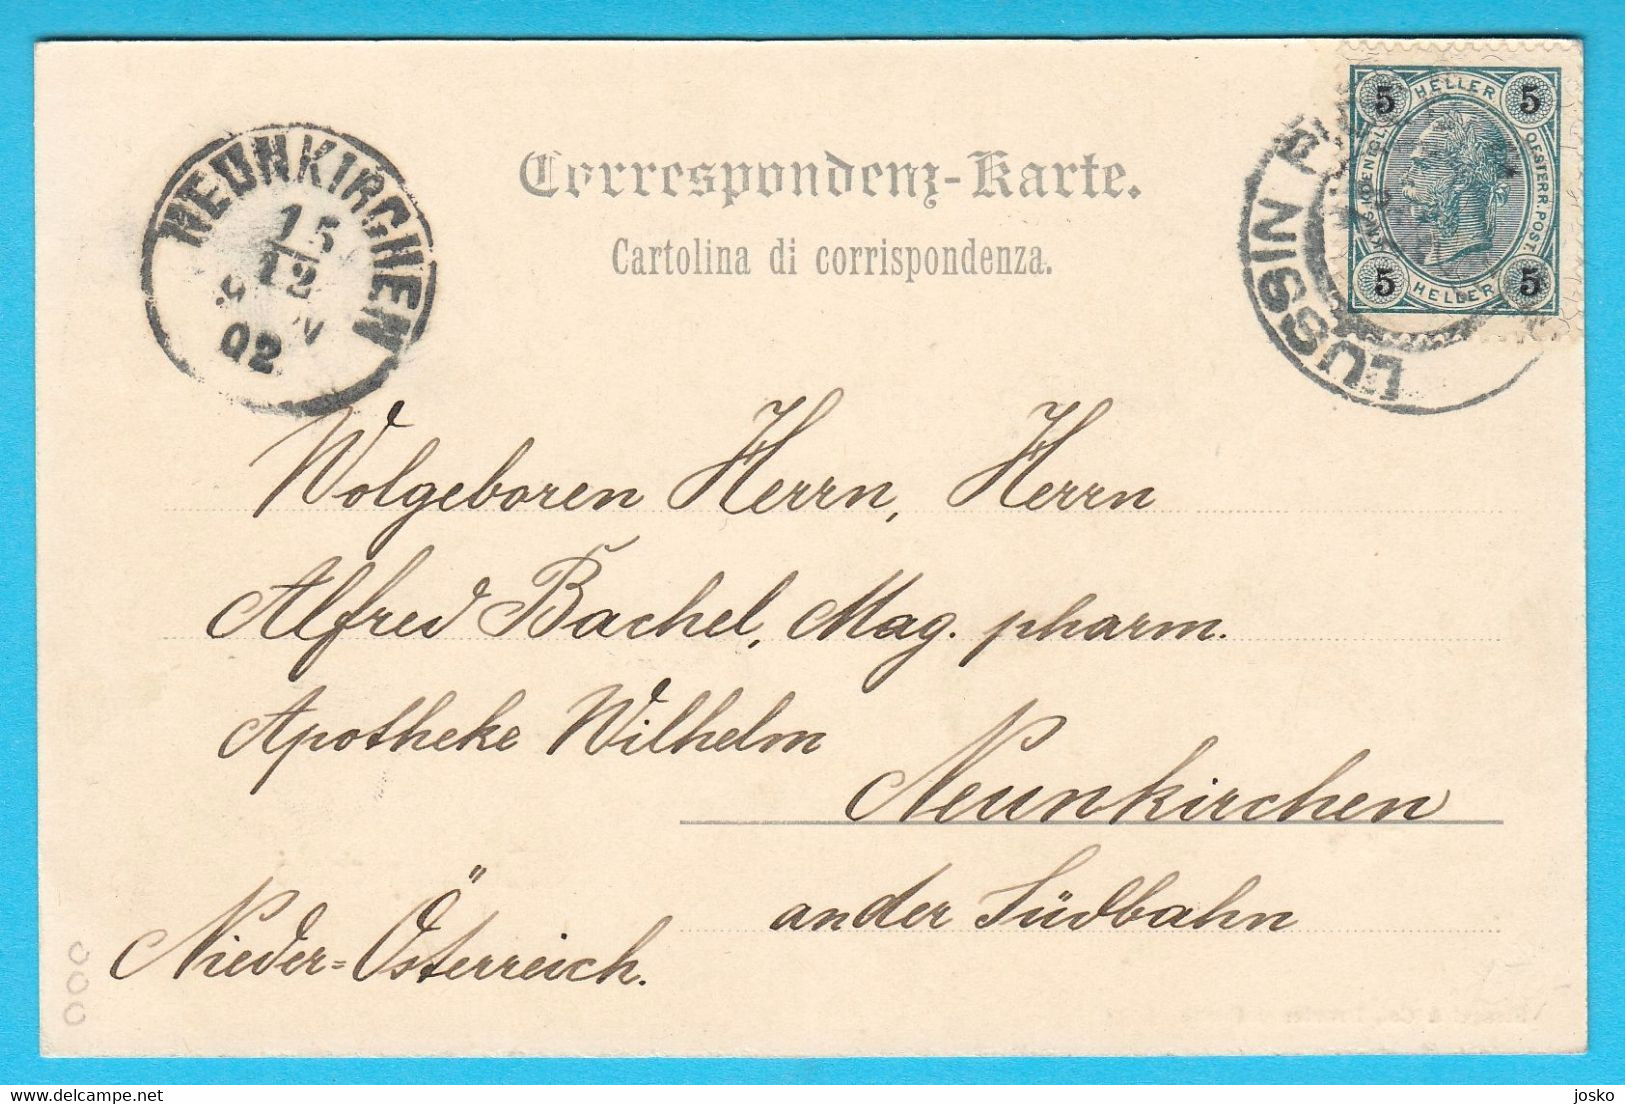 Correspondenz-Karte.
Cartolina di corrispondenza.
NEUNKIRCHEN
15
12
02
LUSSIN
5 HELLER 5
KAIS. KOENIGL. OESTERR. POST.
5 HELLER 5
Wolgeboren Herrn, Herrn
Alfred Bachel, Mag. pharm.
Apotheke Wilhelm
Neunkirchen
an der Südbahn
Nieder=Österreich.
000
josko